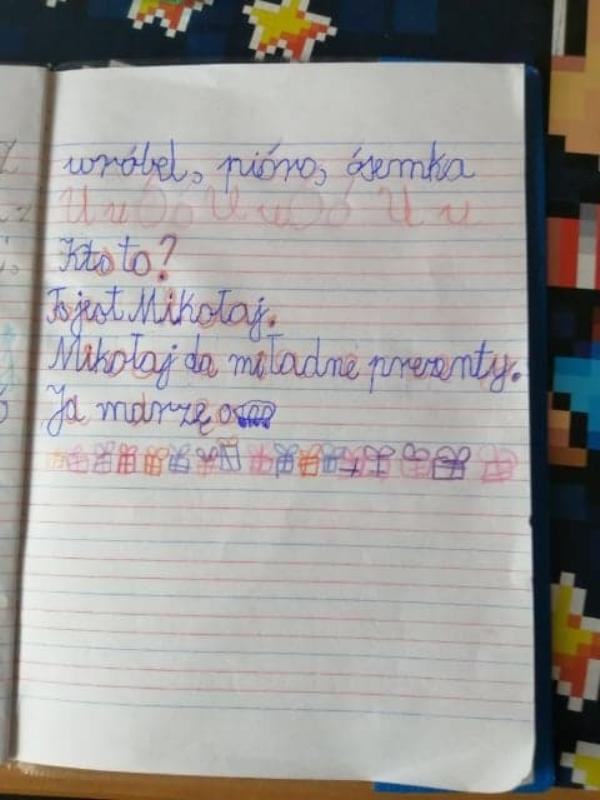 wróbel, pióro, ósemka
U u Ó ó U u Ó ó U u
Kto to?
To jest Mikołaj.
Mikołaj da mi ładne prezenty.
Ja marzę o